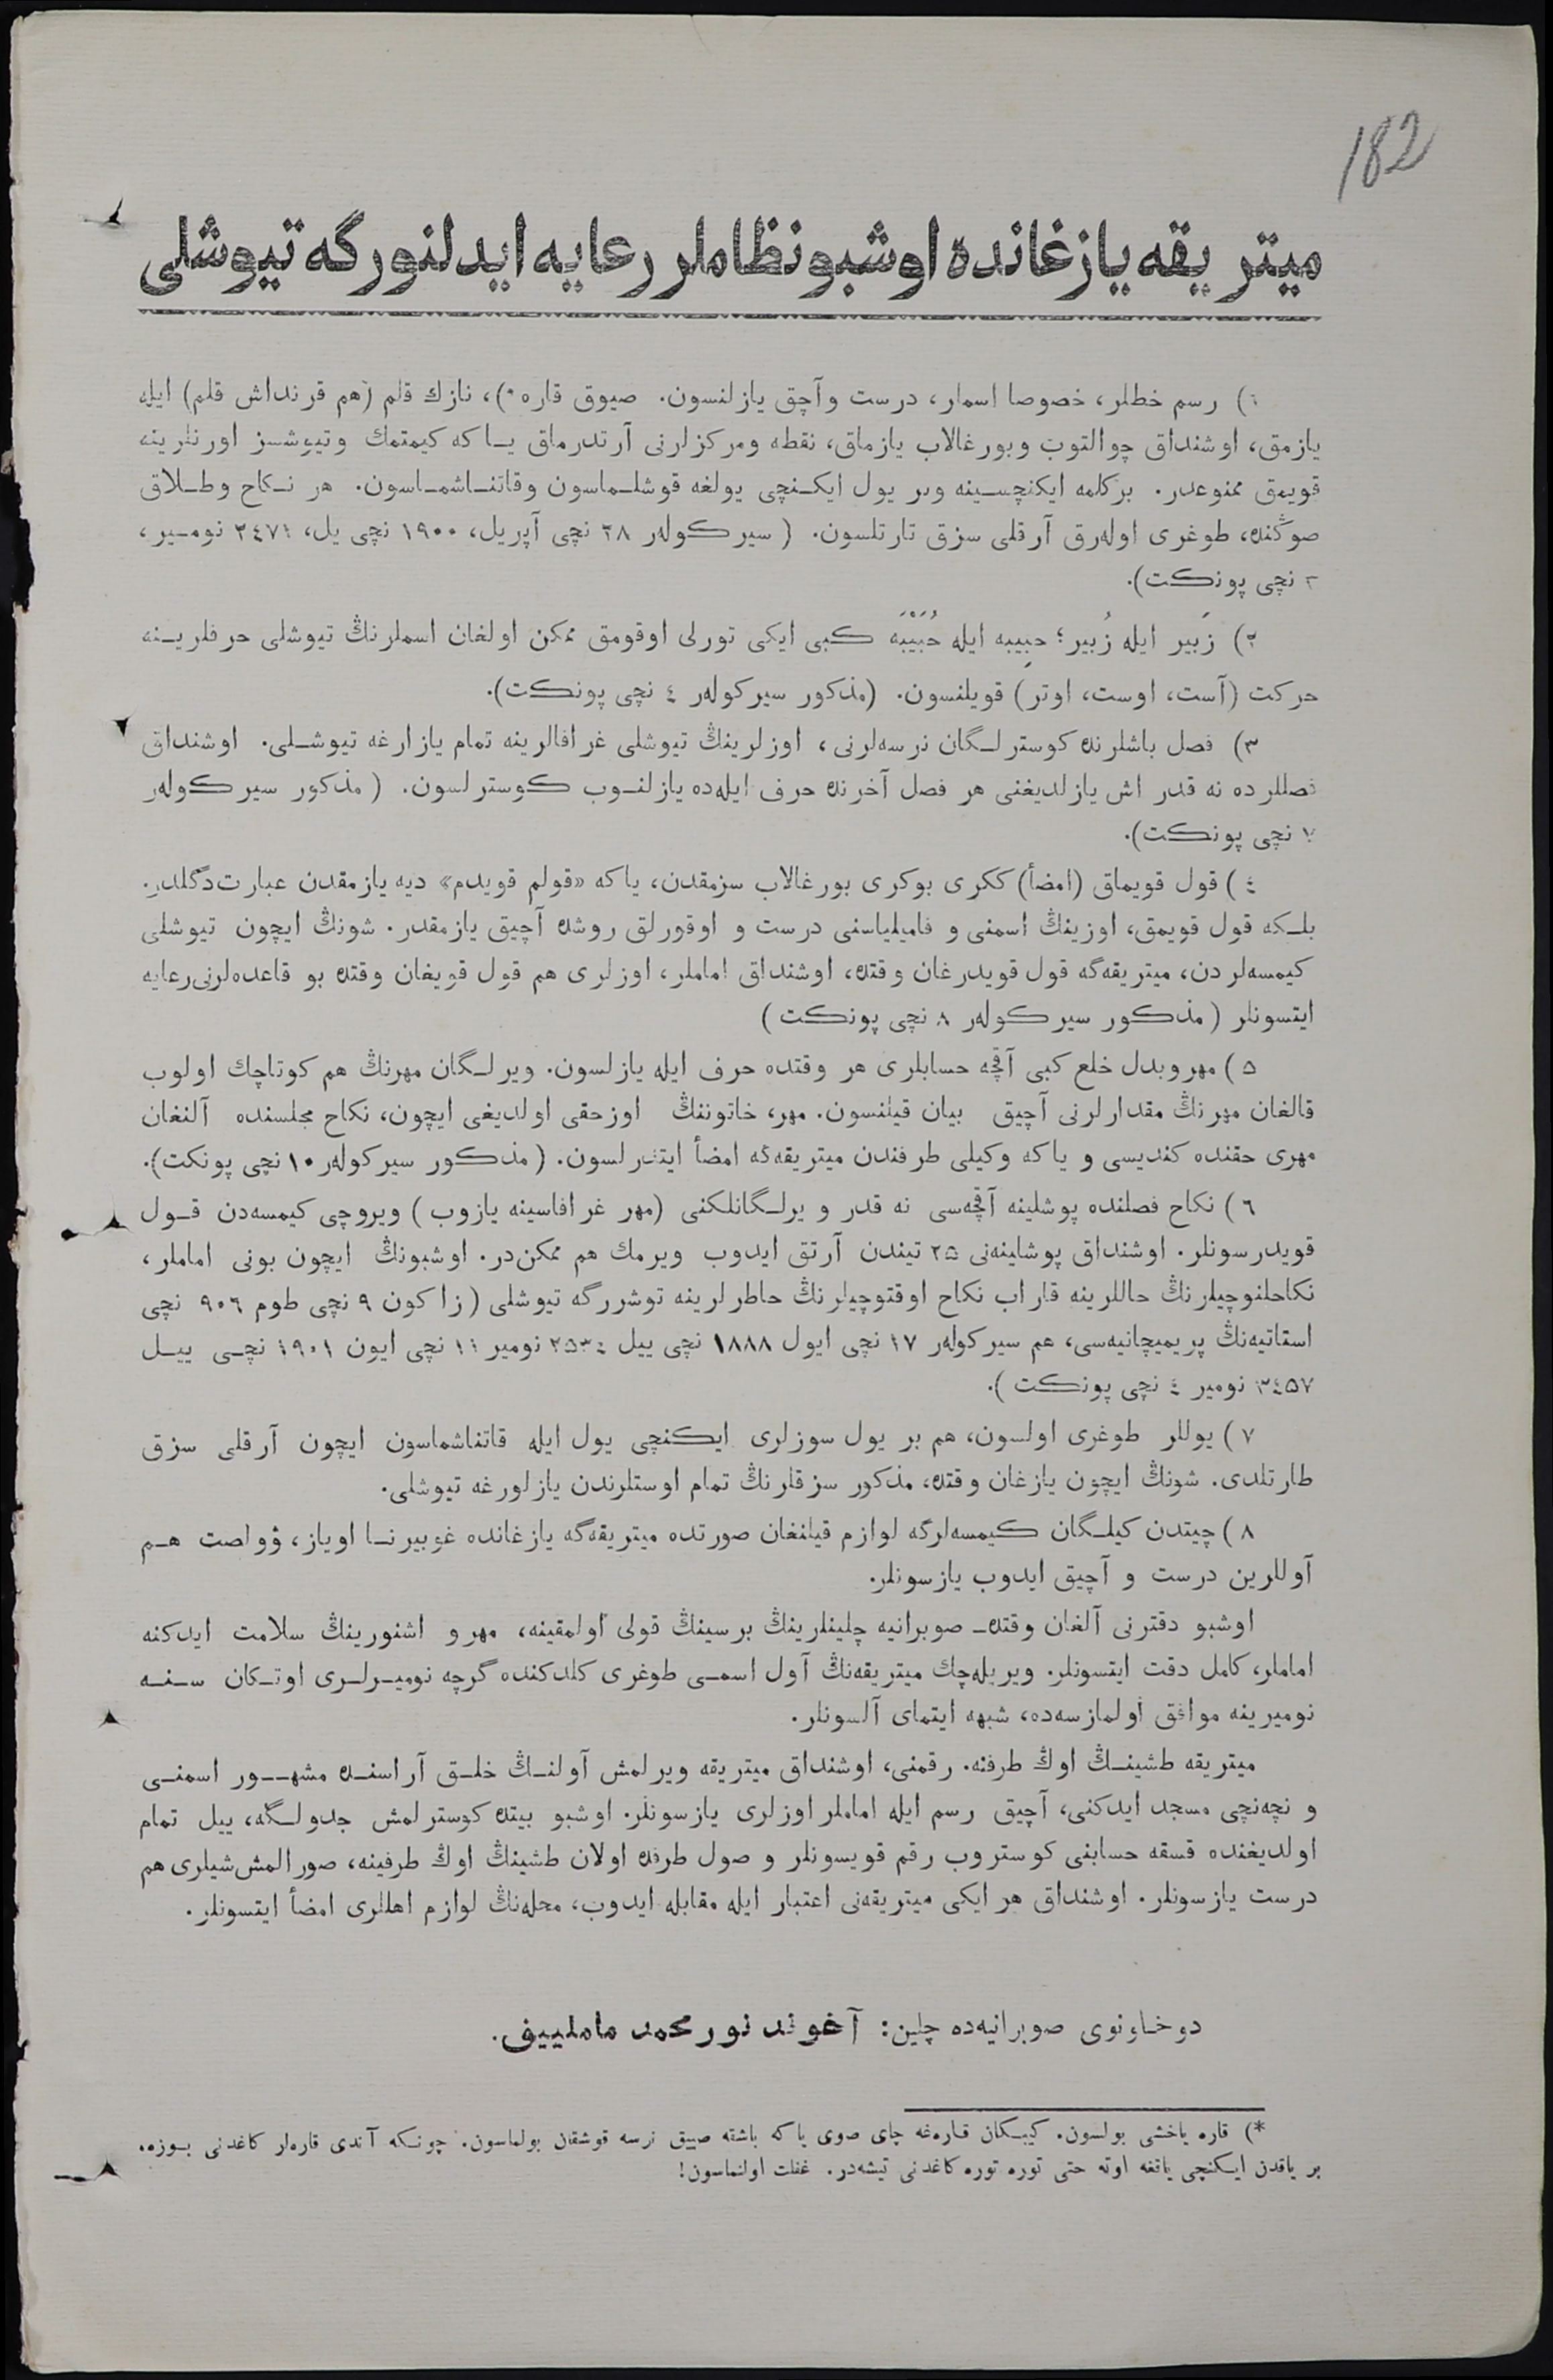 182
ميتريقه يازغانده اوشبو نظاملر رعايه ايدلنورگه تيوشلى
١) رسم خطلر، خصوصا اسملر، درست وآچق يازلنسون. صيوق قاره*)، نازك قلم (هم قرنداش قلم) ايله
يازمق، اوشنداق چوالتوب وبورغالاب يازماق، نقطه ومركزلرنى آرتدرماق يـاكه كيمتمك وتيوشسز اورنلرينه
قويمق ممنوعدر. بركلمه ايكنچسـينه وبر يول ايكـنچى يولغه قوشلـماسون وقاتنـاشمـاسون. هر نـكاح وطـلاق
صوڭنده، طوغرى اولەرق آرقلى سزق تارتلسون. (سيركولەر ٢٨ نچى آپريل، ١٩٠٠ نچى يل، ٢٤٧١ نومـير،
نچى پونكت).
٢) زَبير ايله زُبير؛ حبِيبه ايله حُبَيْبَه كبى ايكى تورلى اوقومق ممكن اولغان اسملرنڭ تيوشلى حرفلريـنه
حركت (آست، اوست، اوتر) قويلنسون. (مذكور سيركولەر ٤ نچى پونكت).
٣) فصل باشلرنده كوسترلـگان نرسەلرنى، اوزلرينڭ تيوشلى غرافالرينه تمام يازارغه تيوشـلى. اوشنداق
فصللرده نه قدر اش يازلديغنى هر فصل آخرنده حرف ايلەده يازلنـوب كوسترلسون. (مذكور سيركولەر
٧ نچى پونكت).
٤) قول قويماق (امضأ) ككرى بوكرى بورغالاب سزمقدن، ياكه «قولم قويدم» ديه يازمقدن عبارت دگلدر.
بلـكه قول قويمق، اوزينڭ اسمنى و فاميلياسنى درست و اوقورلق روشده آچيق يازمقدر. شونڭ ايچون تيوشلى
كيمسەلردن، ميتريقەگه قول قويدرغان وقتده، اوشنداق اماملر، اوزلرى هم قول قويغان وقتده بو قاعدەلرنى رعايه
ايتسونلر (مذكور سيركولەر ٨ نچى پونكت)
٥) مهر وبدل خلع كبى آقچه حسابلرى هر وقتده حرف ايله يازلسون. ويرلـگان مهرنڭ هم كوتاچك اولوب
قالغان مهرنڭ مقدارلرنى آچيق بيان قيلنسون. مهر، خاتوننڭ اوزحقى اولديغى ايچون، نكاح مجلسنده آلنغان
مهرى حقنده كنديسى و ياكه وكيلى طرفندن ميتريقەگه امضأ ايتدرلسون. (مذكور سيركولەر ١٠ نچى پونكت).
٦) نكاح فصلنده پوشلينه آقچەسى نه قدر ويرلـگانلكنى (مهر غرافاسينه يازوب) ويروچى كيمسەدن قـول
قويدرسونلر. اوشنداق پوشلينەنى ٢٥ تيندن آرتق ايدوب ويرمك هم ممكن در. اوشبونڭ ايچون بونى اماملر،
نكاحلنوچيلرنڭ حاللرينه قاراب نكاح اوقتوچيلرنڭ خاطرلرينه توشررگه تيوشلى (زاكون ٩ نچى طوم ٩٠٦ نچى
استاتيەنڭ پريميچانيەسى، هم سيركولەر ١٧ نچى ايول ١٨٨٨ نچى ييل ٢٥٣٤ نومير ١١ نچى ايون ١٩٠١ نچـى ييـل
٣٤٥٧ نومير ٤ نچى پونكت).
٧) يوللر طوغرى اولسون، هم بر يول سوزلرى ايكنچى يول ايله قاتناشماسون ايچون آرقلى سزق
طارتلدى. شونڭ ايچون يازغان وقتده، مذكور سزقلرنڭ تمام اوستلرندن يازلورغه تيوشلى.
٨) چيتدن كيلـگان كيمسەلرگه لوازم قيلنغان صورتده ميتريقەگه يازغانده غوبيرنـا اوياز، ۋولصت هـم
آوللرين درست و آچيق ايدوب يازسونلر.
اوشبو دفترنى آلغان وقتده صوبرانيه چلينلرينڭ برسينڭ قولى اولمقينه، مهر و اشنورينڭ سلامت ايدكنه
اماملر، كامل دقت ايتسونلر. ويريلەچك ميتريقەنڭ آول اسمـى طوغرى كلدكنده گرچه نوميـرلـرى اوتـكان سـنـه
نوميرينه موافق اولمازسەده، شبهه ايتماى آلسونلر.
ميتريقه طشينـڭ اوڭ طرفنه. رقمنى، اوشنداق ميتريقه ويرلمش آولنـڭ خلـق آراسنـده مشهـور اسمنـى
و نچەنچى مسجد ايدكنى، آچيق رسم ايله اماملر اوزلرى يازسونلر. اوشبو بيتده كوسترلمش جدولـگه، ييل تمام
اولديغنده قسقه حسابنى كوستروب رقم قويسونلر و صول طرفده اولان طشينڭ اوڭ طرفينه، صورالمش شيلرى هم
درست يازسونلر. اوشنداق هر ايكى ميتريقەنى اعتبار ايله مقابله ايدوب، محلەنڭ لوازم اهللرى امضأ ايتسونلر.
دوخاونوى صوبرانيەده چلين: آخوند نورمحمد ماملييف.
*) قاره ياخشى بولسون. كيبـكان قارەغه چاى صوى ياكه باشقه صييق نرسه قوشقان بولماسون. چونـكه آندى قارەلر كاغدنى بـوزه،
بر ياقدن ايـكنچى ياققه اوته حتى توره توره كاغدنى تيشەدر. غفلت اولنماسون!